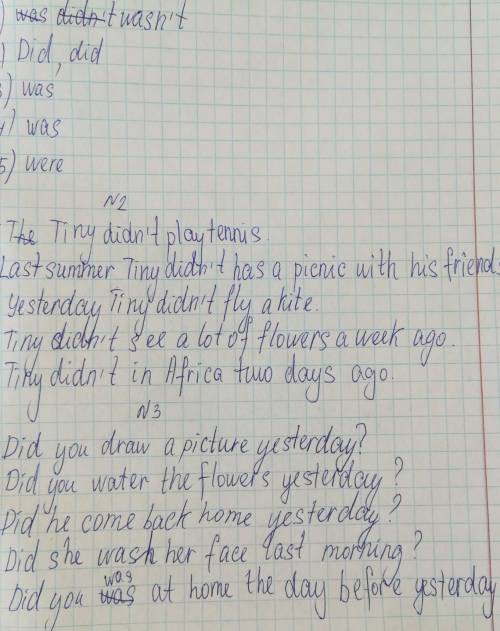 ) was didn't wasn't
) Did, did
3) was
4) was
5) were
N2
The Tiny didn't play tennis.
Last summer Tiny didn't has a picnic with his friends
Yesterday Tiny didn't fly a kite.
Tiny didn't see a lot of flowers a week ago.
Tiny didn't in Africa two days ago.
N3
Did you draw a picture yesterday?
Did you water the flowers yesterday?
Did he come back home yesterday?
Did she wash her face last morning?
Did you was was at home the day before yesterday